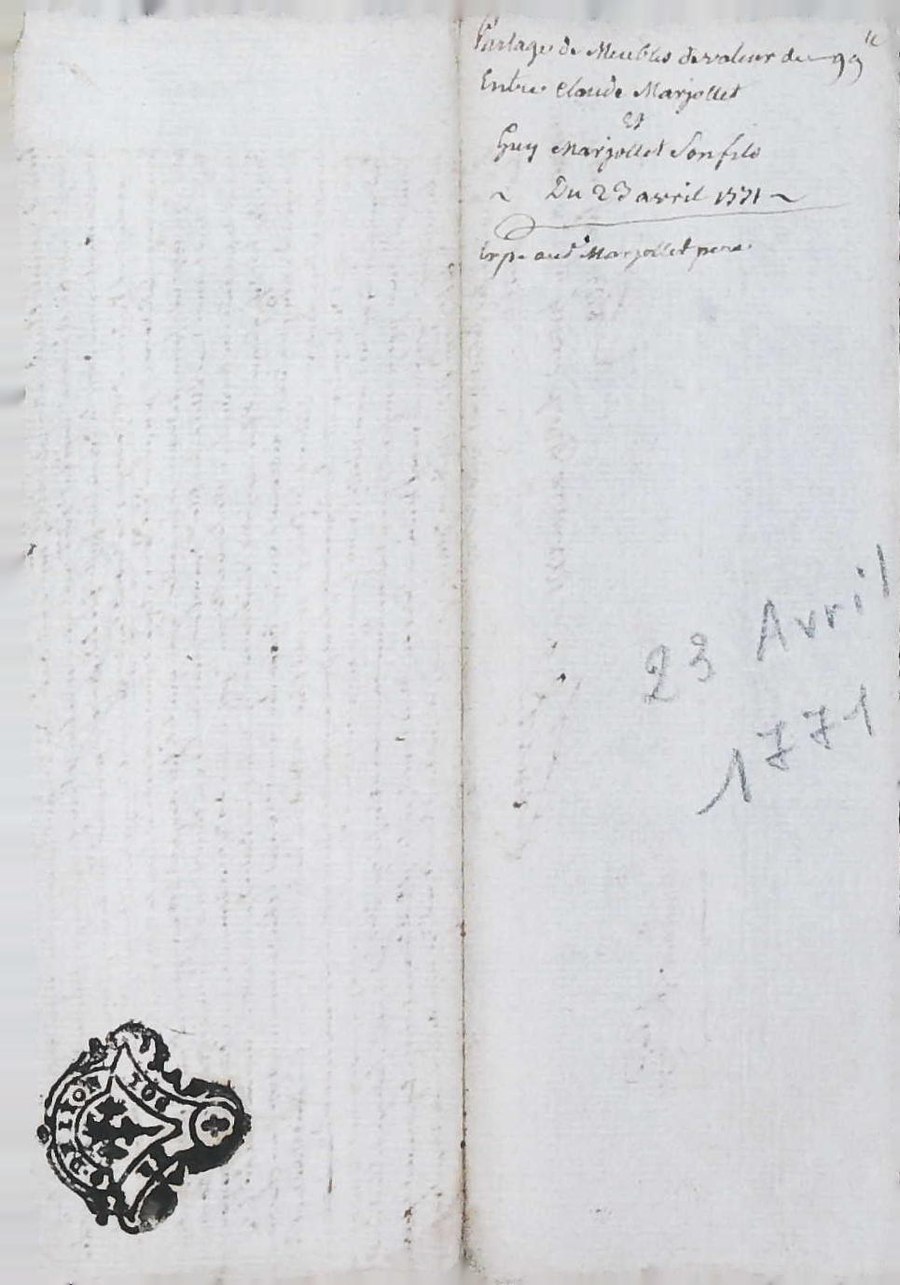 Partage de Meubles de valeur de 99 ₶
Entre Claude Marjollet
Et
Guy Marjollet Son fils
~ Du 23 avril 1771 ~
Exp. aud. Marjollet pere
23 Avril
1771
DE LION
SOL